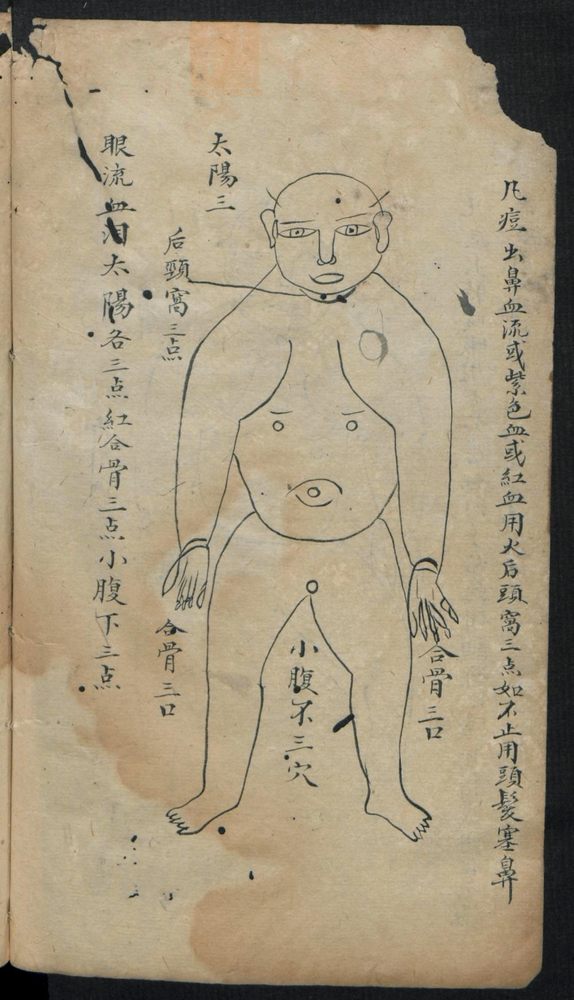 凡痘出鼻血流或紫色血或紅血用火后頭窩三点如不止用頭髮塞鼻
太陽三
后頸窩三点
合骨三口
小腹不三穴
合骨三口
眼流血泪太陽各三点紅合骨三点小腹下三点